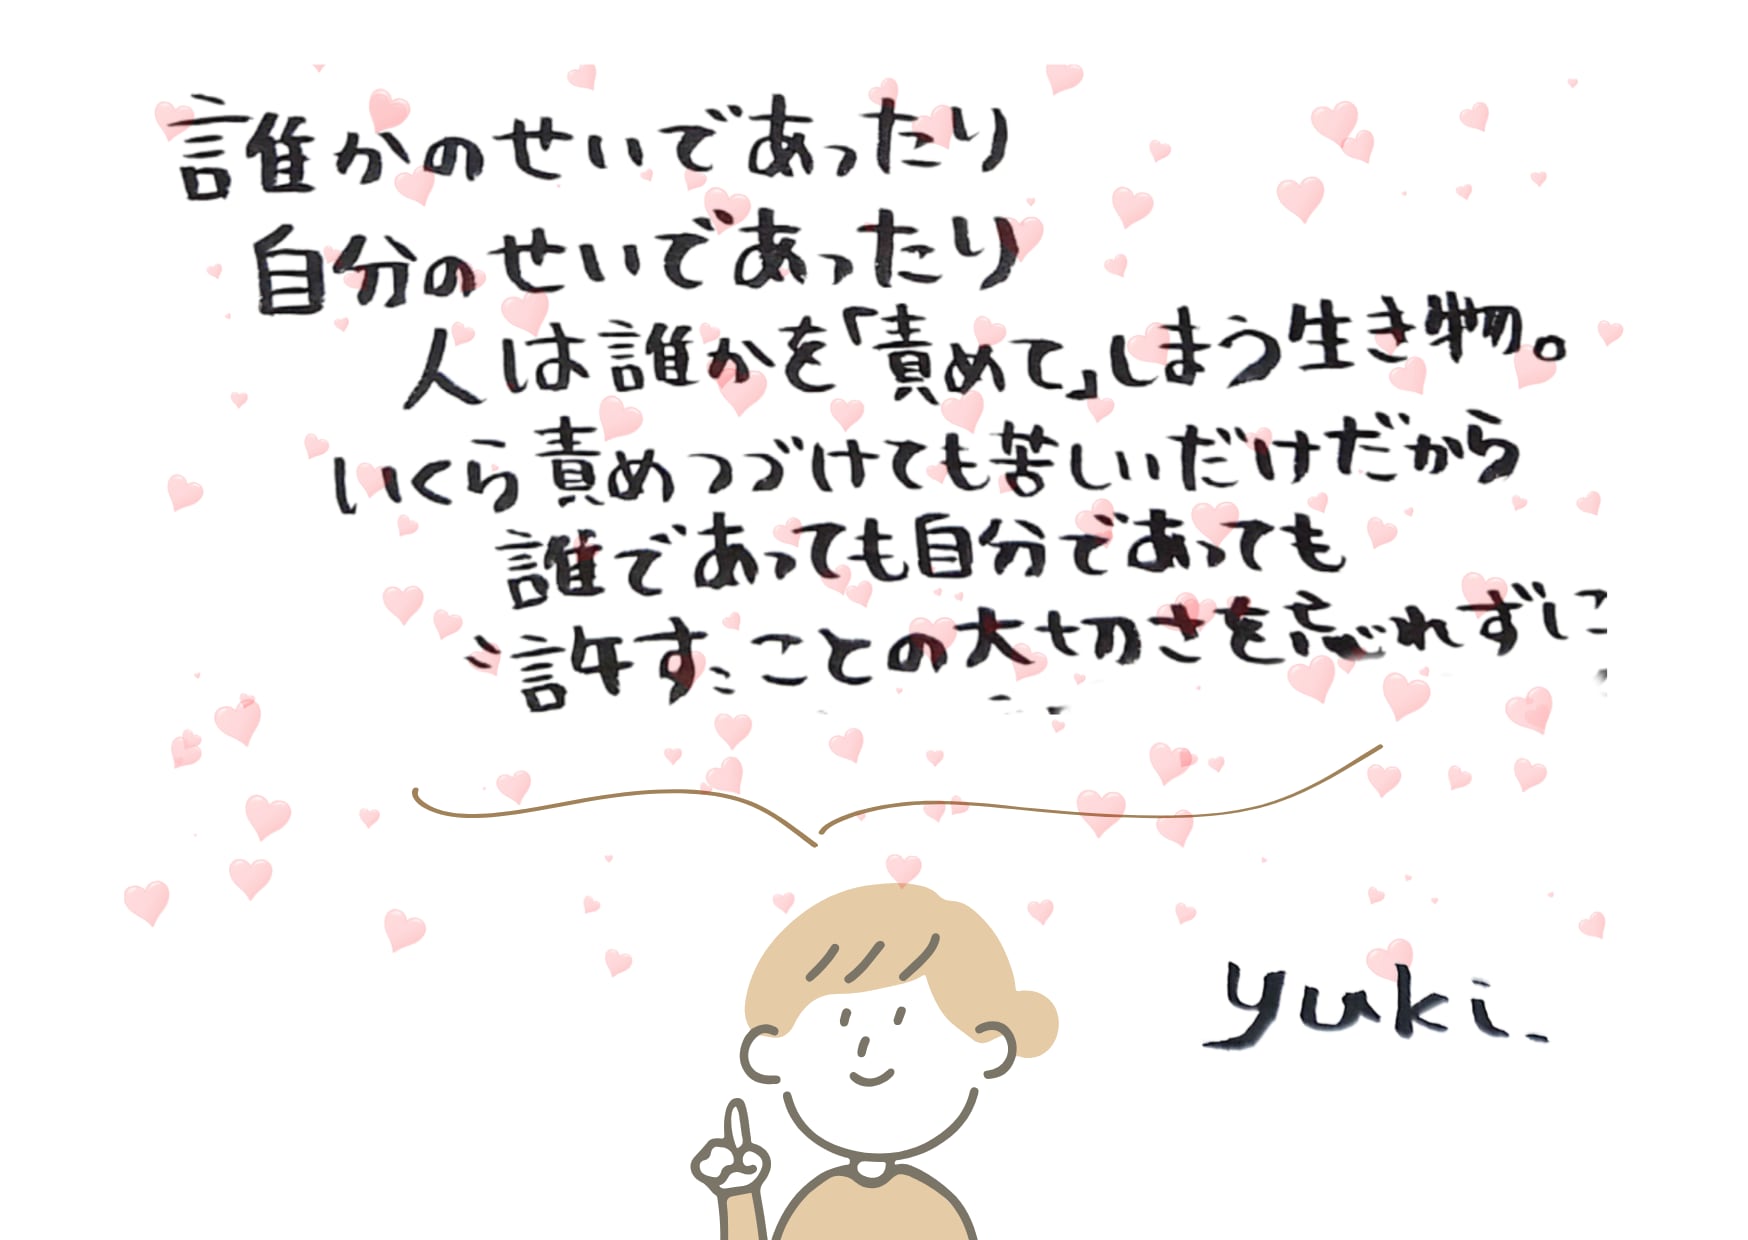 誰かのせいであったり
自分のせいであったり
人は誰かを「責めて」しまう生き物。
いくら責めつづけても苦しいだけだから
誰であっても自分であても
〝許す〟ことの大切さを忘れずに
yuki.